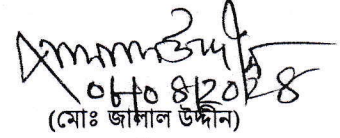 ০৮।০৪।২০২৪
(মোঃ জালাল উদ্দীন)